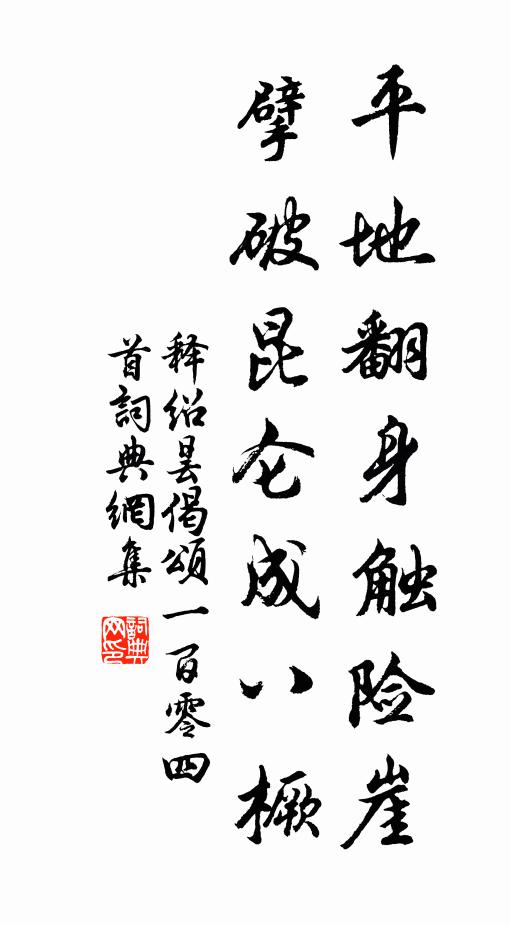 平地翻身触险崖
擘破昆仑成八橛
释绍昙偈頌一百零四
首詞典網集
詞典
网印